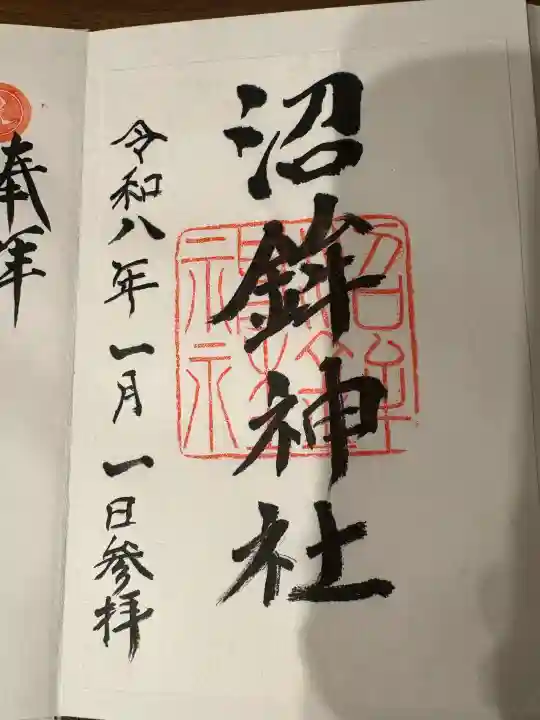 沼鉾神社
令和八年一月一日参拝
奉拝